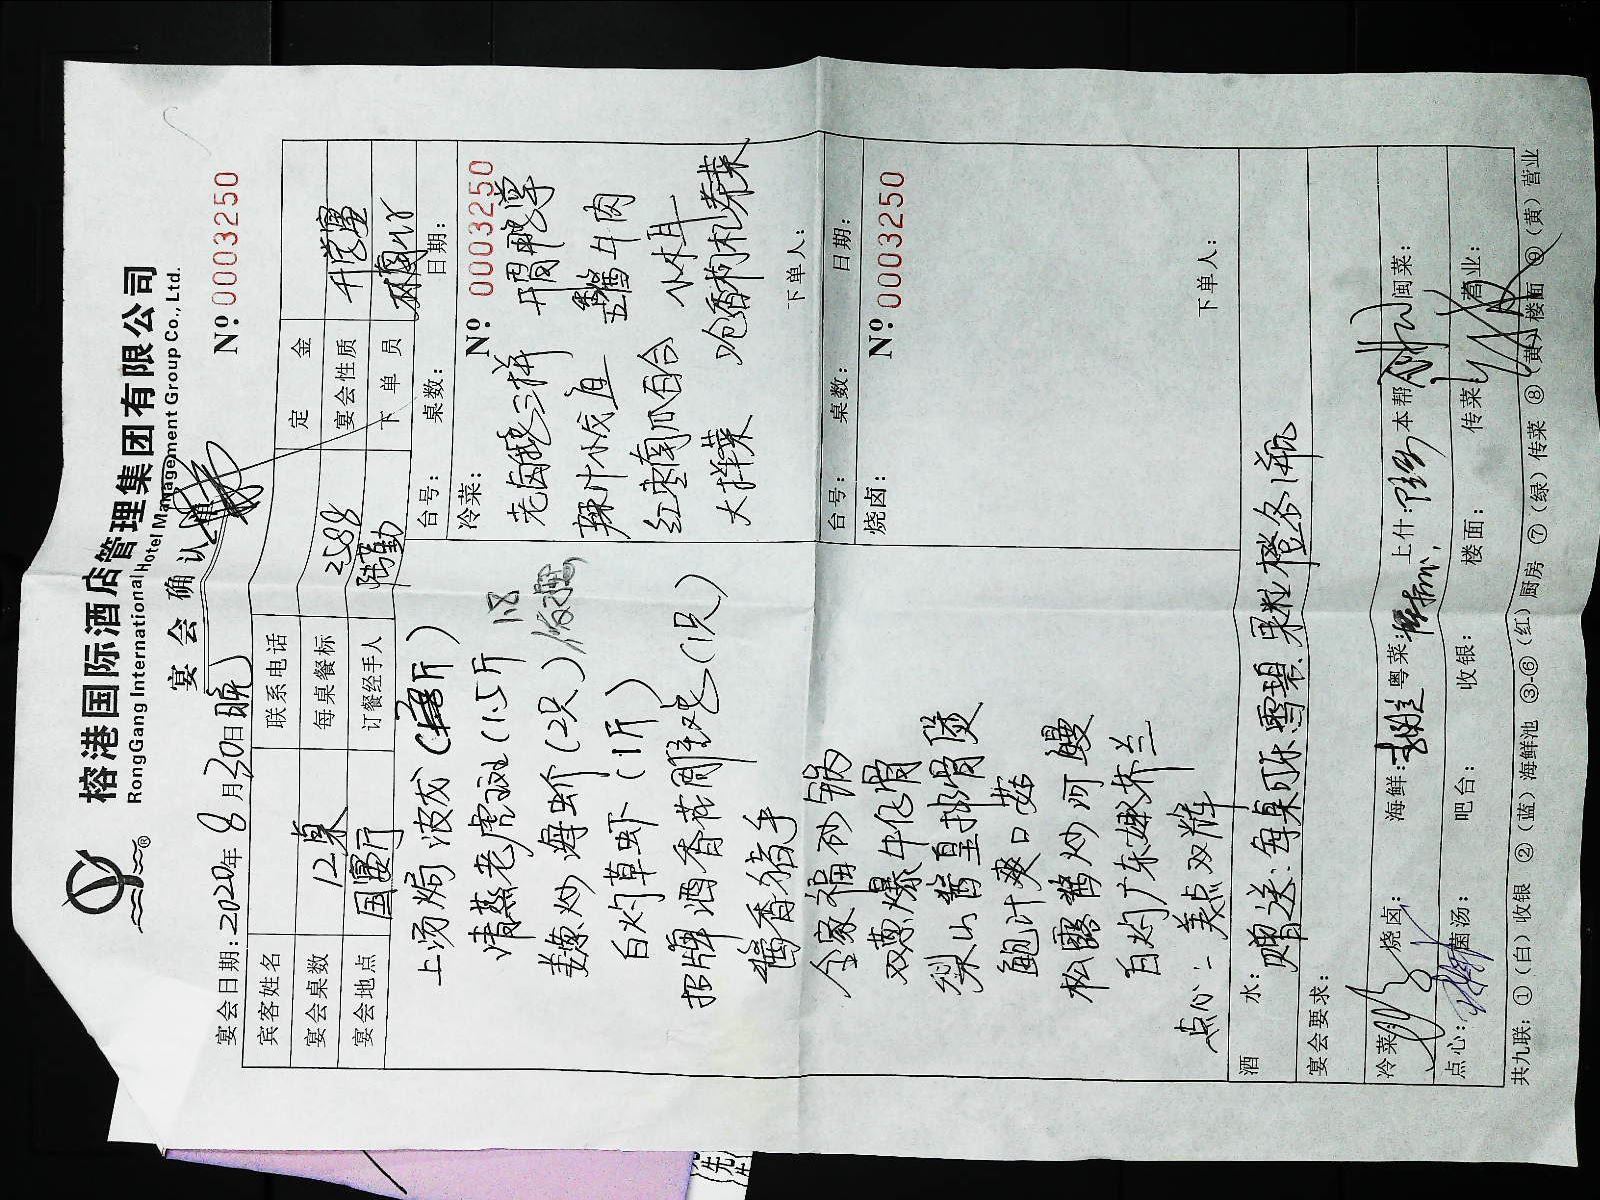 榕港国际酒店管理集团有限公司
RongGang International Hotel Management Group Co., Ltd.
宴会确认单
№ 0003250
宴会日期：2020年8月30日晚
宾客姓名 联系电话 定金
宴会桌数 12桌 每桌餐标 2588 宴会性质 升学宴
宴会地点 国宴厅 订餐经手人 下单员
上汤焗波龙
清蒸老虎斑（1.5斤
1.8
姜葱炒海蚧（2只）
白灼草虾（1斤）
招牌酒香花雕鸡（1只）
酱香猪手
全家福砂锅
双葱爆牛仔骨
梁山酱皇排骨煲
鲍汁爽口菇
松露酱炒河鳗
白灼广东娴芥兰
点心：美点双辉
台号： 桌数： 日期：
冷菜： № 0003250
老卤鹅三样
辣汁小成直
五香酱牛肉
红枣南瓜百合
小木耳
大拌菜
呛香枸杞芹菜
下单人：
台号： 桌数： 日期：
烧卤： № 0003250
下单人：
酒水： 赠送：每桌可乐雪碧果粒橙各1瓶
宴会要求：
冷菜： 烧卤： 海鲜： 粤菜： 上什： 本帮： 闽菜：
点心： 菌汤： 吧台： 收银： 楼面： 传菜： 营业：
共九联：①（白）收银 ②（蓝）海鲜池 ③-⑥（红）厨房 ⑦（绿）传菜 ⑧（黄）楼面 ⑨（黄）营业